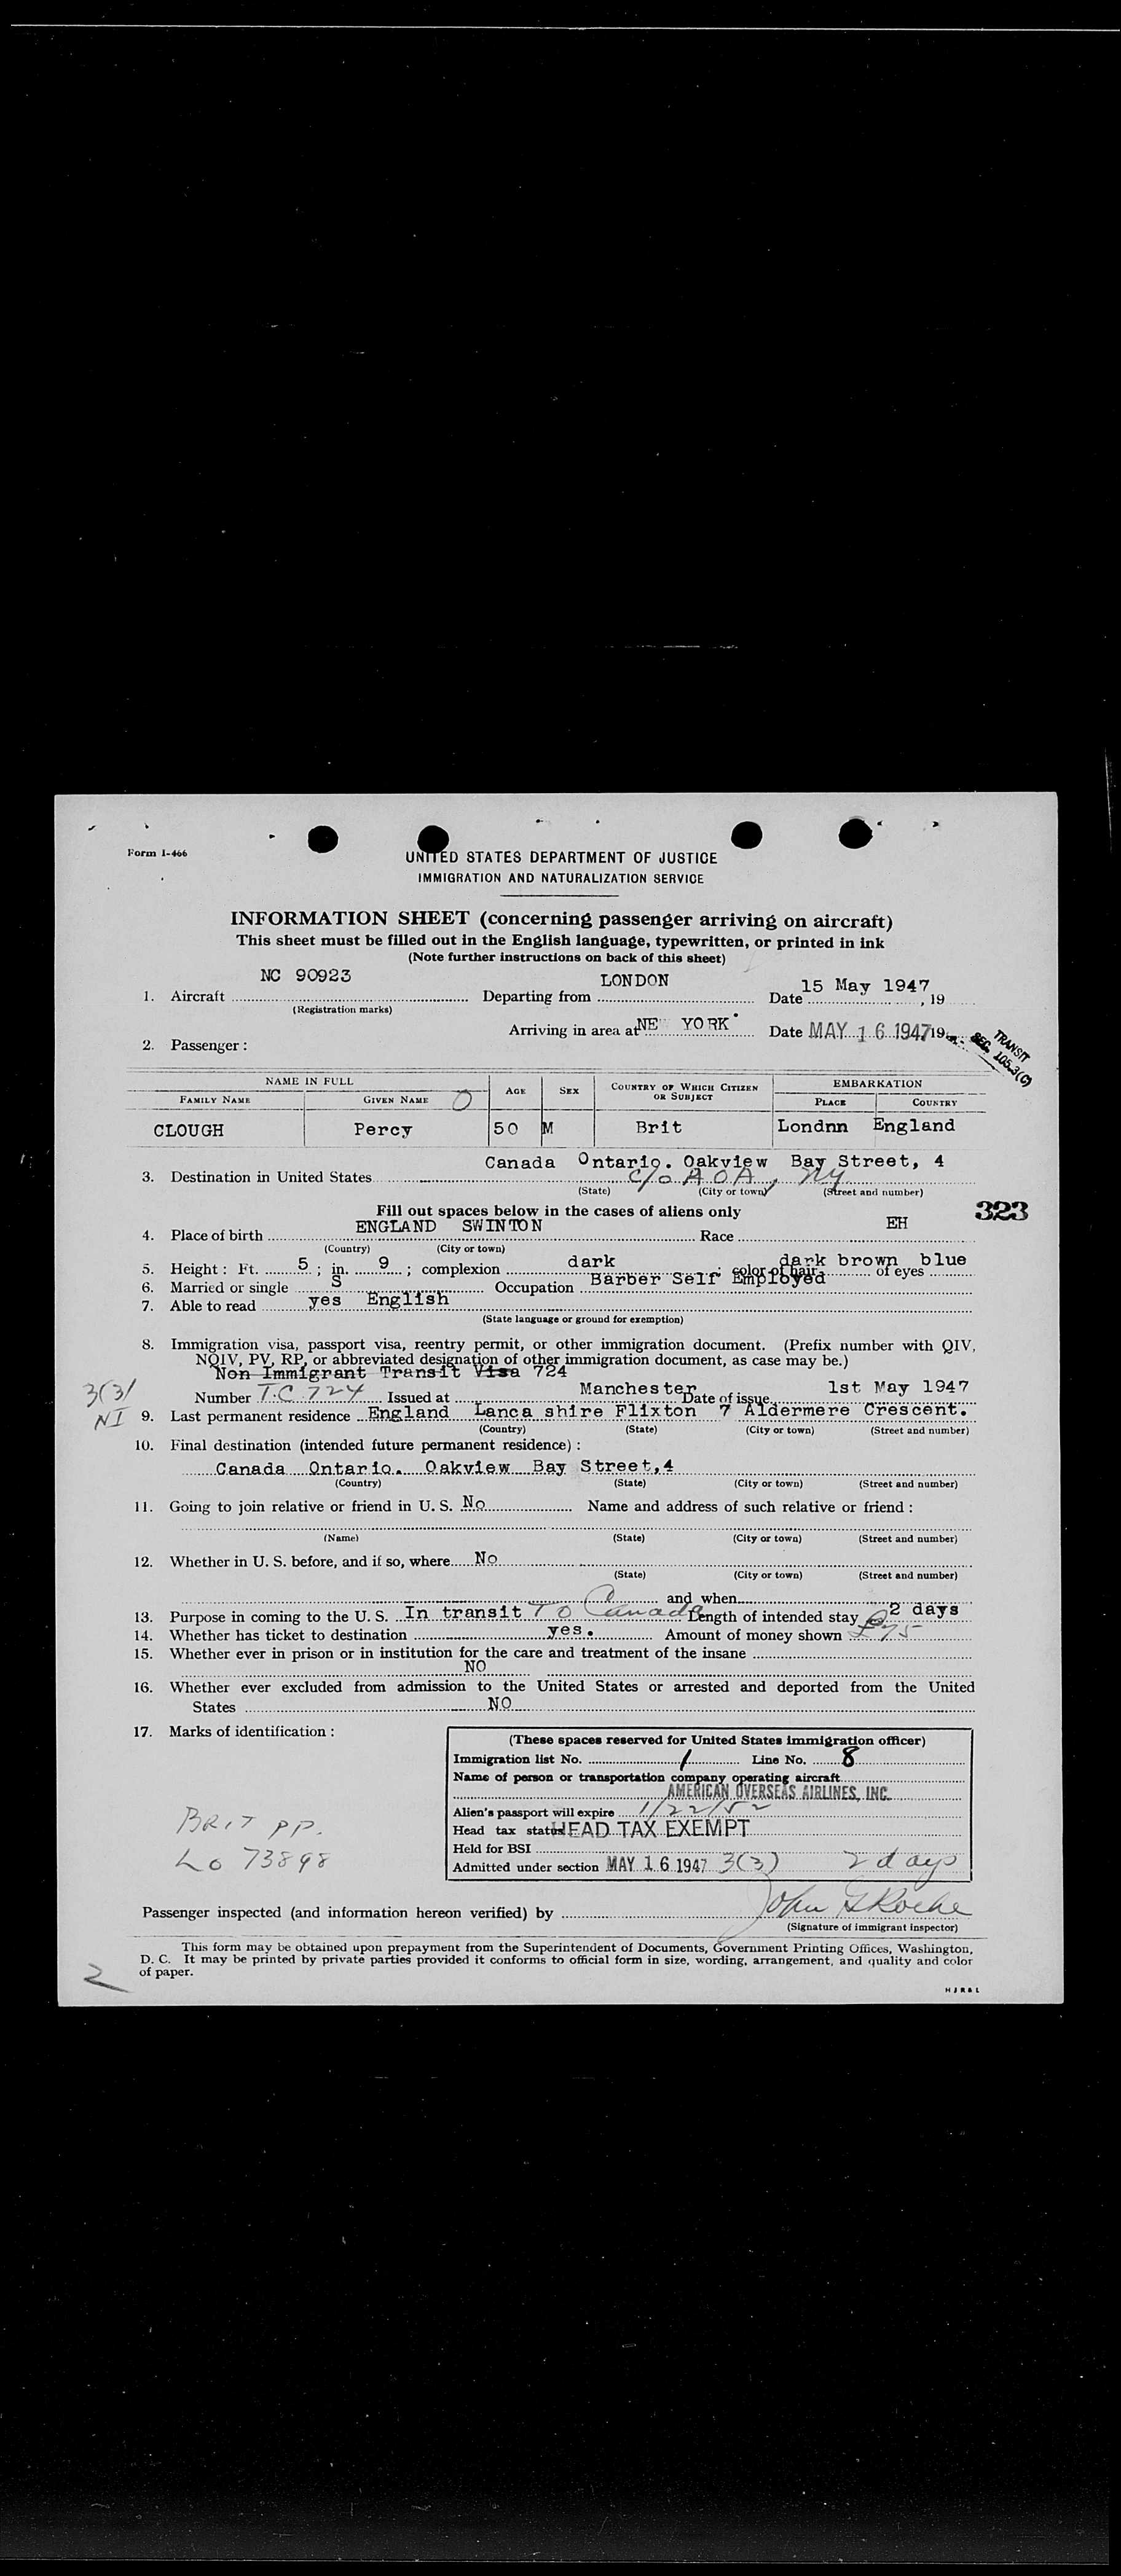 Form I-466
UNITED STATES DEPARTMENT OF JUSTICE
IMMIGRATION AND NATURALIZATION SERVICE
INFORMATION SHEET (concerning passenger arriving on aircraft)
This sheet must be filled out in the English language, typewritten, or printed in ink
(Note further instructions on back of this sheet)
1. Aircraft NC 90923 Departing from LONDON Date 15 May 1947, 19
(Registration marks)
Arriving in area at NE YORK Date MAY 16 1947 19
TRANSIT
SEC. 105.3(C)
2. Passenger:
NAME IN FULL AGE SEX COUNTRY OF WHICH CITIZEN OR SUBJECT EMBARKATION
FAMILY NAME GIVEN NAME PLACE COUNTRY
CLOUGH Percy 50 M Brit Londnn England
Canada Ontario. Oakview Bay Street, 4
3. Destination in United States c/o A O A, NY
(State) (City or town) (Street and number)
Fill out spaces below in the cases of aliens only
323
4. Place of birth ENGLAND SWINTON Race EH
(Country) (City or town)
5. Height: Ft. 5; in. 9; complexion dark; color of hair dark brown of eyes blue
6. Married or single S Occupation Barber Self Employed
7. Able to read yes English
(State language or ground for exemption)
8. Immigration visa, passport visa, reentry permit, or other immigration document. (Prefix number with QIV,
NQIV, PV, RP, or abbreviated designation of other immigration document, as case may be.)
Non Immigrant Transit Visa 724
3(3)
NI
Number T.C. 724 Issued at Manchester Date of issue 1st May 1947
9. Last permanent residence England Lanca shire Flixton 7 Aldermere Crescent.
(Country) (State) (City or town) (Street and number)
10. Final destination (intended future permanent residence):
Canada Ontario. Oakview Bay Street,4
(Country) (State) (City or town) (Street and number)
11. Going to join relative or friend in U. S. No Name and address of such relative or friend:
(Name) (State) (City or town) (Street and number)
12. Whether in U. S. before, and if so, where No
(State) (City or town) (Street and number)
and when
13. Purpose in coming to the U. S. In transit TO Canada Length of intended stay 2 days
14. Whether has ticket to destination yes. Amount of money shown £75
15. Whether ever in prison or in institution for the care and treatment of the insane
NO
16. Whether ever excluded from admission to the United States or arrested and deported from the United
States NO
17. Marks of identification:
(These spaces reserved for United States immigration officer)
Immigration list No. 1 Line No. 8
Name of person or transportation company operating aircraft
AMERICAN OVERSEAS AIRLINES, INC.
Alien's passport will expire 1/22/52
Head tax status HEAD TAX EXEMPT
Held for BSI
Admitted under section MAY 16 1947 3(3) 2 days
BRIT PP.
Lo 73898
Passenger inspected (and information hereon verified) by John G Roche
(Signature of immigrant inspector)
This form may be obtained upon prepayment from the Superintendent of Documents, Government Printing Offices, Washington,
D. C. It may be printed by private parties provided it conforms to official form in size, wording, arrangement, and quality and color
of paper.
2
H J R & L